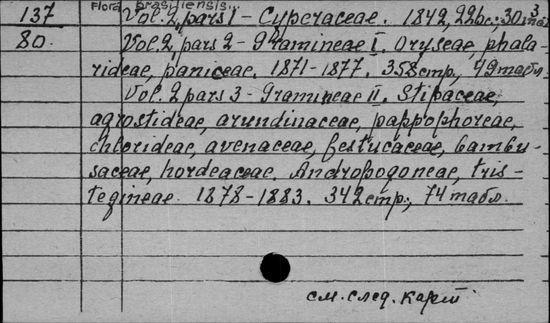 137 Flora Brasiliensis.
Vol. 2, pars 1 - Cyperaceae. 1842, 22 bc; 30 табл
80. Vol. 2, pars 2 - Gramineae I. Oryseae, phala-
rideae, paniceae. 1871-1877. 358 стр., 49 табл.
Vol. 2, pars 3 - Gramineae II. Stipaceae,
agrostideae, arundinaceae, pappophoreae,
chlorideae, avenaceae, festucaceae, bambu-
saceae, hordeaceae, Andropogoneae, tris-
tegineae. 1878-1883. 342 стр., 74 табл.
см. след. карт